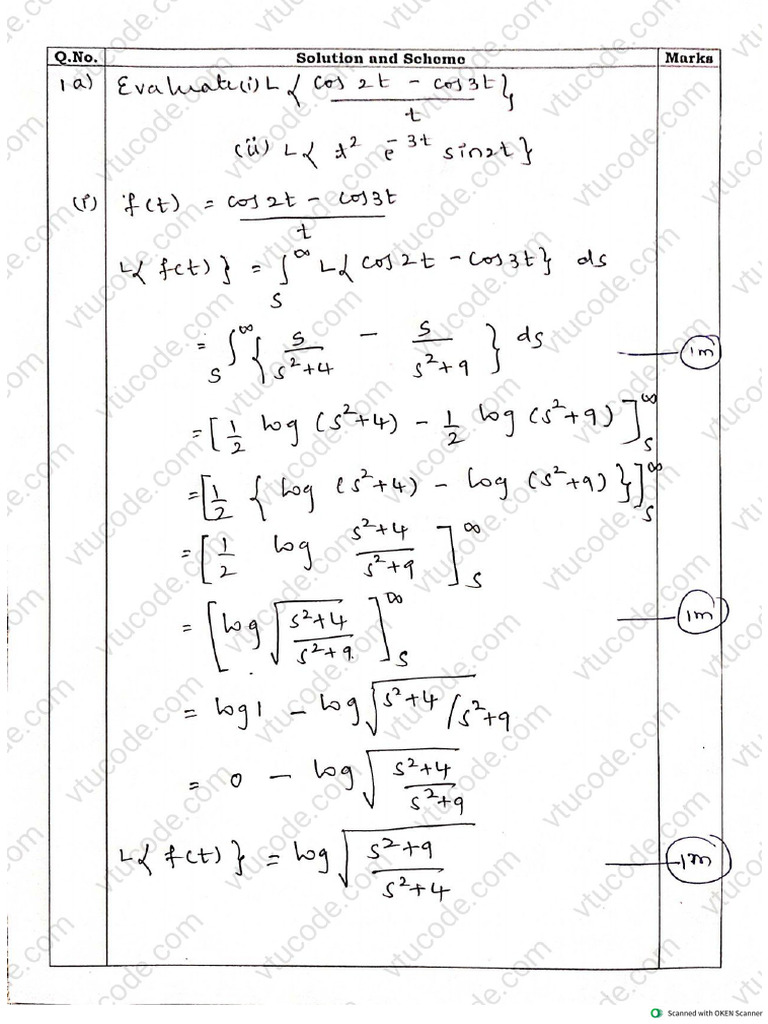 Q.No. Solution and Scheme Marks
1a) Evaluate (i) L{ (cos 2t - cos 3t)/t }
(ii) L{ t² e^-3t sin2t }
(i) f(t) = (cos 2t - cos 3t)/t
L{ f(t) } = ∫_s^∞ L{ cos 2t - cos 3t } ds
= ∫_s^∞ { s/(s²+4) - s/(s²+9) } ds 1m
= [ 1/2 log (s²+4) - 1/2 log (s²+9) ]_s^∞
= [ 1/2 { log (s²+4) - log (s²+9) } ]_s^∞
= [ 1/2 log (s²+4)/(s²+9) ]_s^∞
= [ log √((s²+4)/(s²+9)) ]_s^∞ 1m
= log 1 - log √(s²+4 / s²+9)
= 0 - log √((s²+4)/(s²+9))
L{ f(t) } = log √((s²+9)/(s²+4)) 1m
vtucode.com
Scanned with OKEN Scanner